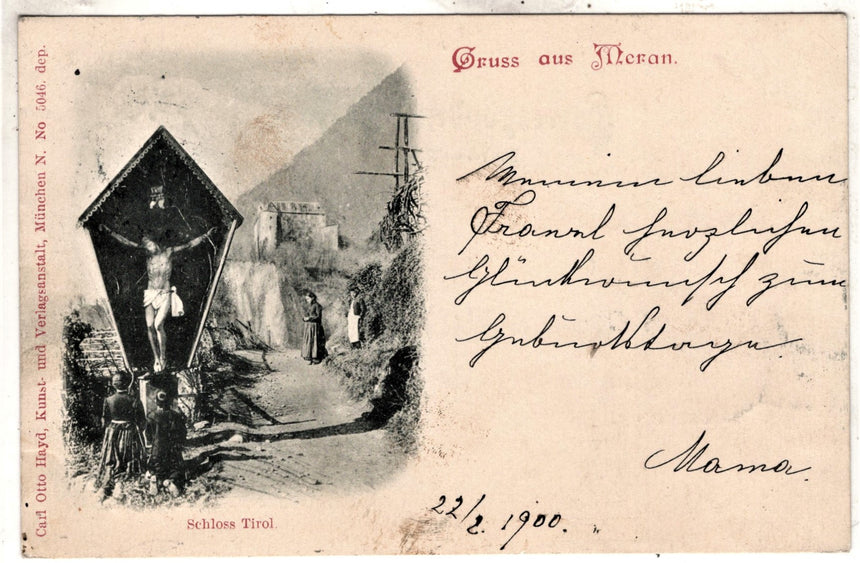 Gruss aus Meran.
Meinem lieben
Franzl herzlichen
Glückwunsch zum
Geburtstage.
Mama.
22/2. 1900.
Schloss Tirol.
Carl Otto Hayd, Kunst- und Verlagsanstalt, München N. No 5046. dep.